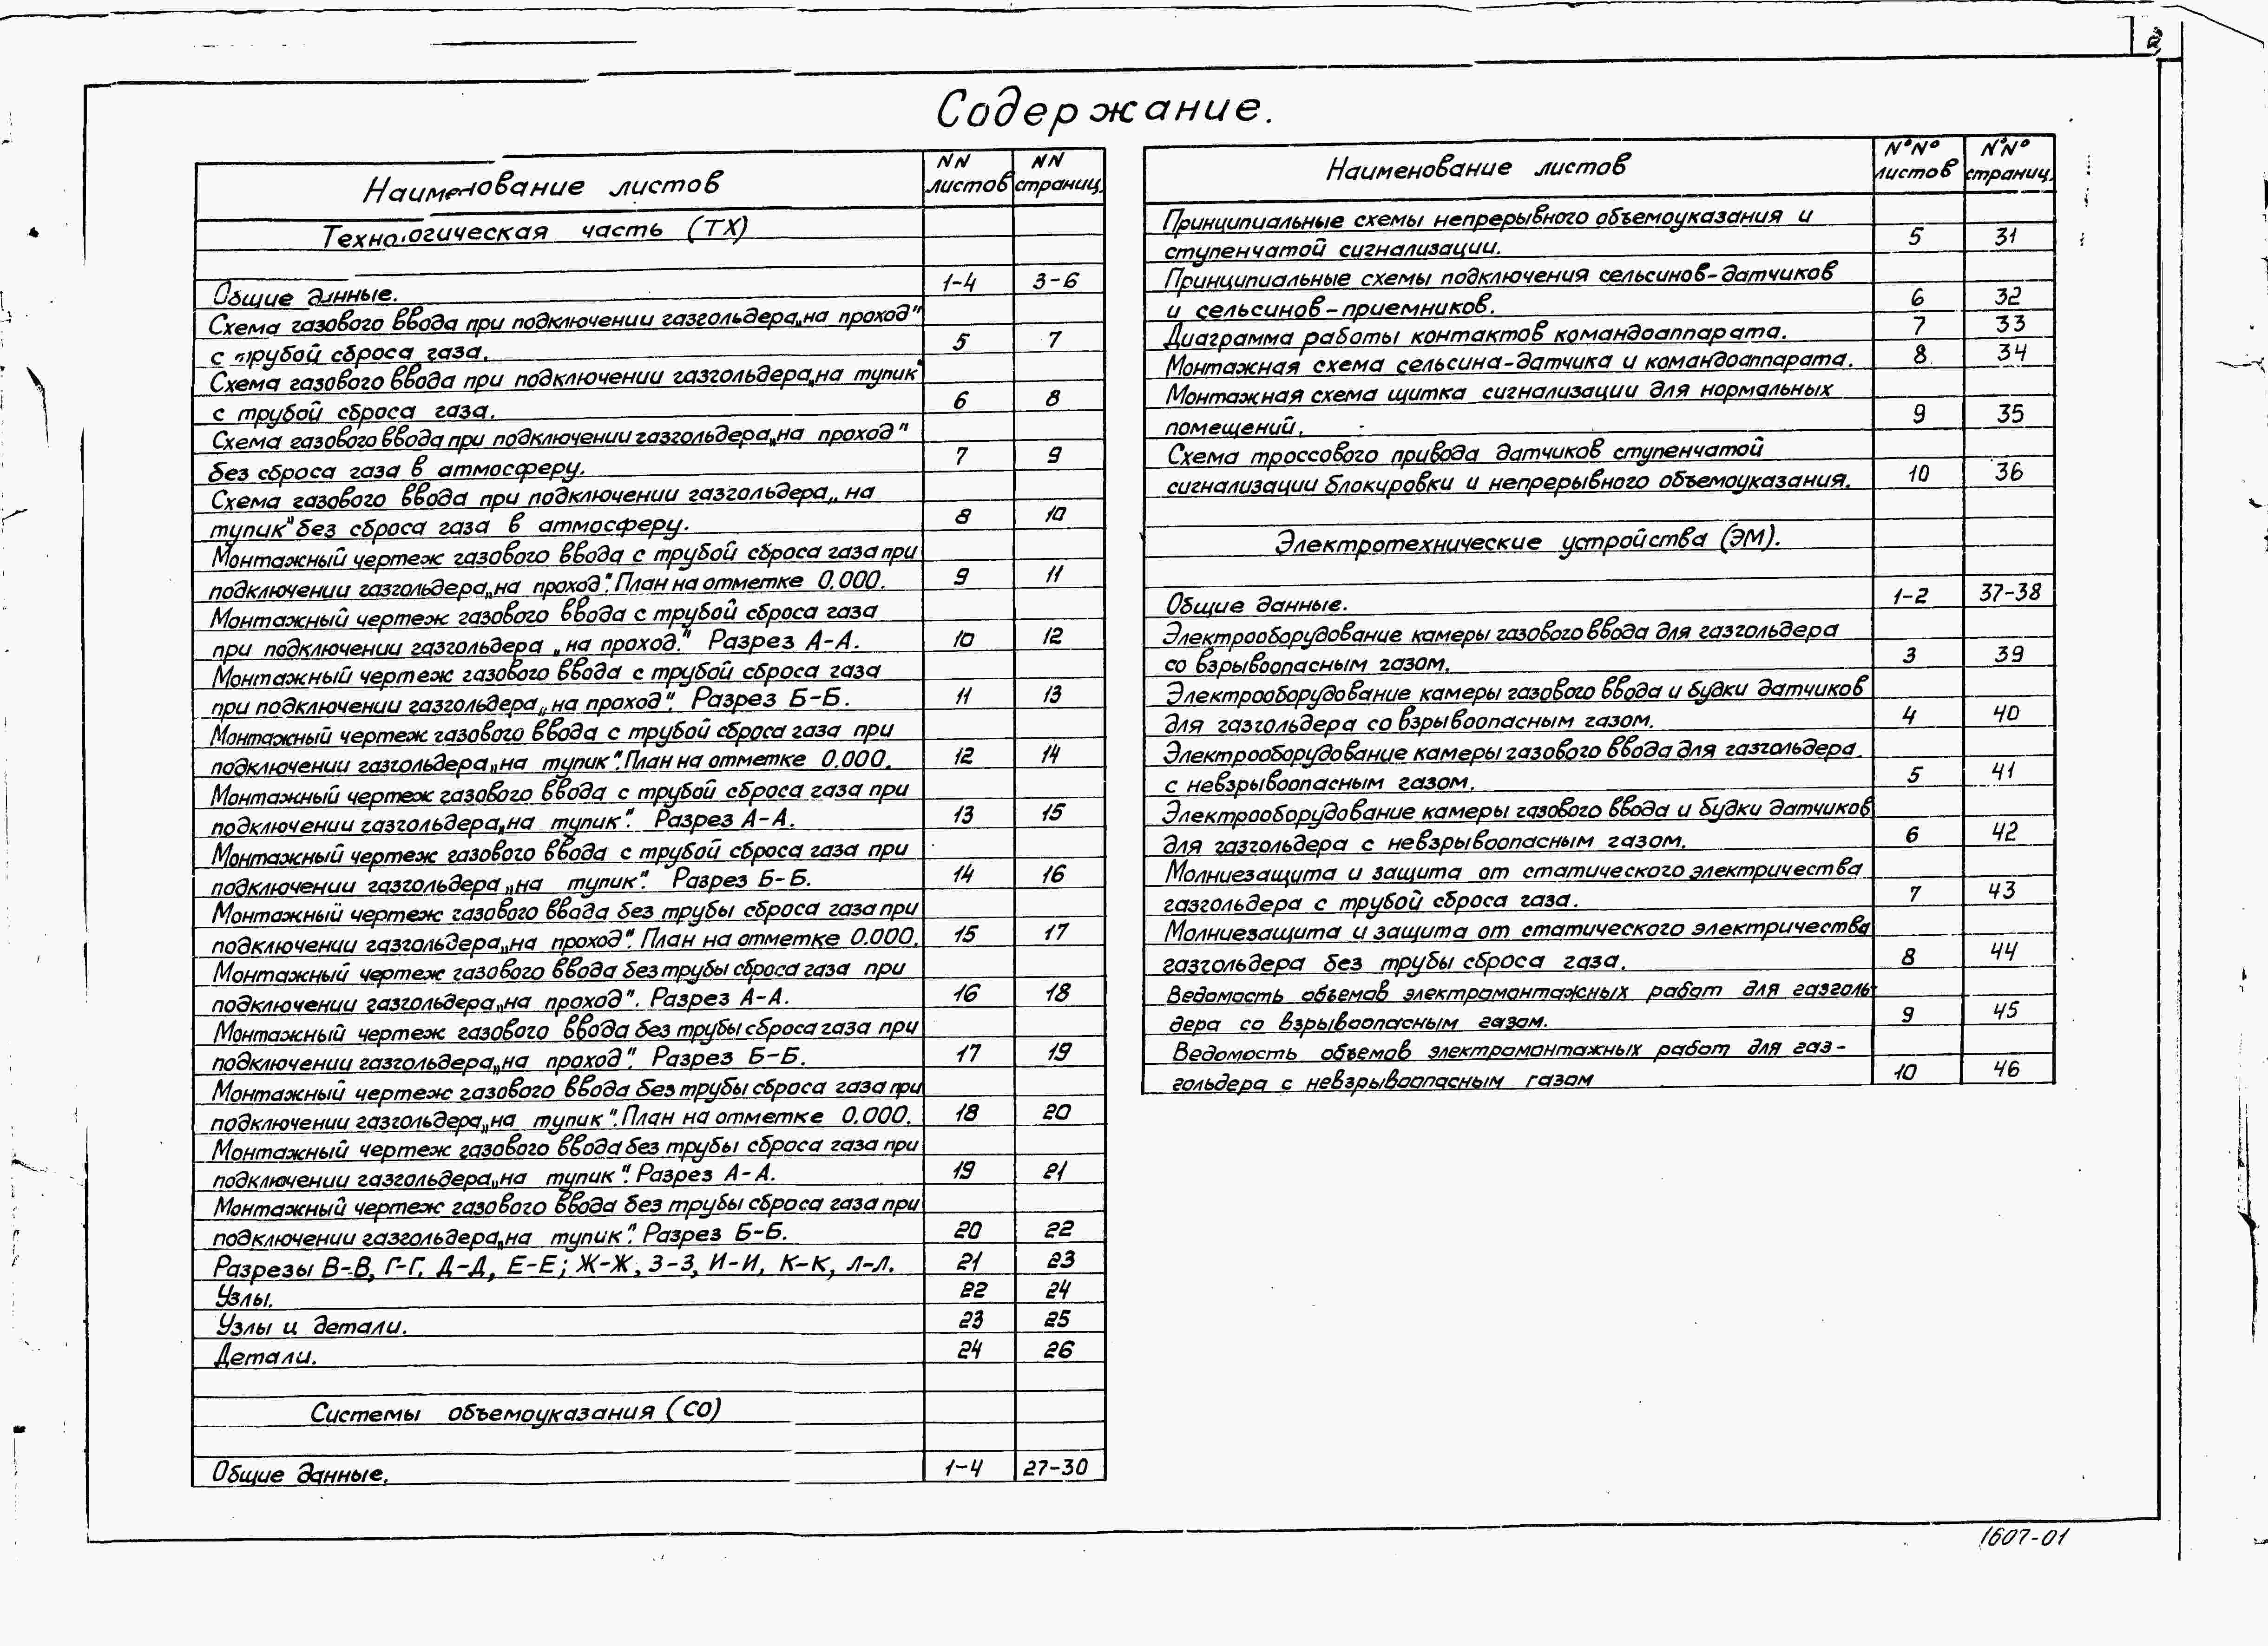 2
Содержание.
Наименование листов NN листов NN страниц.
Технологическая часть (ТХ)
Общие данные. 1-4 3-6
Схема газового ввода при подключении газгольдера „на проход"
с трубой сброса газа. 5 7
Схема газового ввода при подключении газгольдера „на тупик"
с трубой сброса газа. 6 8
Схема газового ввода при подключении газгольдера „на проход"
без сброса газа в атмосферу. 7 9
Схема газового ввода при подключении газгольдера „на
тупик" без сброса газа в атмосферу. 8 10
Монтажный чертеж газового ввода с трубой сброса газа при
подключении газгольдера „на проход". План на отметке 0.000. 9 11
Монтажный чертеж газового ввода с трубой сброса газа
при подключении газгольдера „на проход." Разрез А-А. 10 12
Монтажный чертеж газового ввода с трубой сброса газа
при подключении газгольдера „на проход". Разрез Б-Б. 11 13
Монтажный чертеж газового ввода с трубой сброса газа при
подключении газгольдера „на тупик". План на отметке 0.000. 12 14
Монтажный чертеж газового ввода с трубой сброса газа при
подключении газгольдера „на тупик". Разрез А-А. 13 15
Монтажный чертеж газового ввода с трубой сброса газа при
подключении газгольдера „на тупик". Разрез Б-Б. 14 16
Монтажный чертеж газового ввода без трубы сброса газа при
подключении газгольдера „на проход". План на отметке 0.000. 15 17
Монтажный чертеж газового ввода без трубы сброса газа при
подключении газгольдера „на проход". Разрез А-А. 16 18
Монтажный чертеж газового ввода без трубы сброса газа при
подключении газгольдера „на проход". Разрез Б-Б. 17 19
Монтажный чертеж газового ввода без трубы сброса газа при
подключении газгольдера „на тупик". План на отметке 0.000. 18 20
Монтажный чертеж газового ввода без трубы сброса газа при
подключении газгольдера „на тупик". Разрез А-А. 19 21
Монтажный чертеж газового ввода без трубы сброса газа при
подключении газгольдера „на тупик". Разрез Б-Б. 20 22
Разрезы В-В, Г-Г, Д-Д, Е-Е; Ж-Ж, З-З, И-И, К-К, Л-Л. 21 23
Узлы. 22 24
Узлы и детали. 23 25
Детали. 24 26
Системы объемоуказания (СО)
Общие данные. 1-4 27-30
Наименование листов №№ листов №№ страниц.
Принципиальные схемы непрерывного объемоуказания и
ступенчатой сигнализации. 5 31
Принципиальные схемы подключения сельсинов-датчиков
и сельсинов-приемников. 6 32
Диаграмма работы контактов командоаппарата. 7 33
Монтажная схема сельсина-датчика и командоаппарата. 8 34
Монтажная схема щитка сигнализации для нормальных
помещений. 9 35
Схема троссового привода датчиков ступенчатой
сигнализации блокировки и непрерывного объемоуказания. 10 36
Электротехнические устройства (ЭМ).
Общие данные. 1-2 37-38
Электрооборудование камеры газового ввода для газгольдера
со взрывоопасным газом. 3 39
Электрооборудование камеры газового ввода и будки датчиков
для газгольдера со взрывоопасным газом. 4 40
Электрооборудование камеры газового ввода для газгольдера.
с невзрывоопасным газом. 5 41
Электрооборудование камеры газового ввода и будки датчиков
для газгольдера с невзрывоопасным газом. 6 42
Молниезащита и защита от статического электричества
газгольдера с трубой сброса газа. 7 43
Молниезащита и защита от статического электричества
газгольдера без трубы сброса газа. 8 44
Ведомость объемов электромонтажных работ для газголь-
дера со взрывоопасным газом. 9 45
Ведомость объемов электромонтажных работ для газ-
гольдера с невзрывоопасным газом 10 46
1607-01